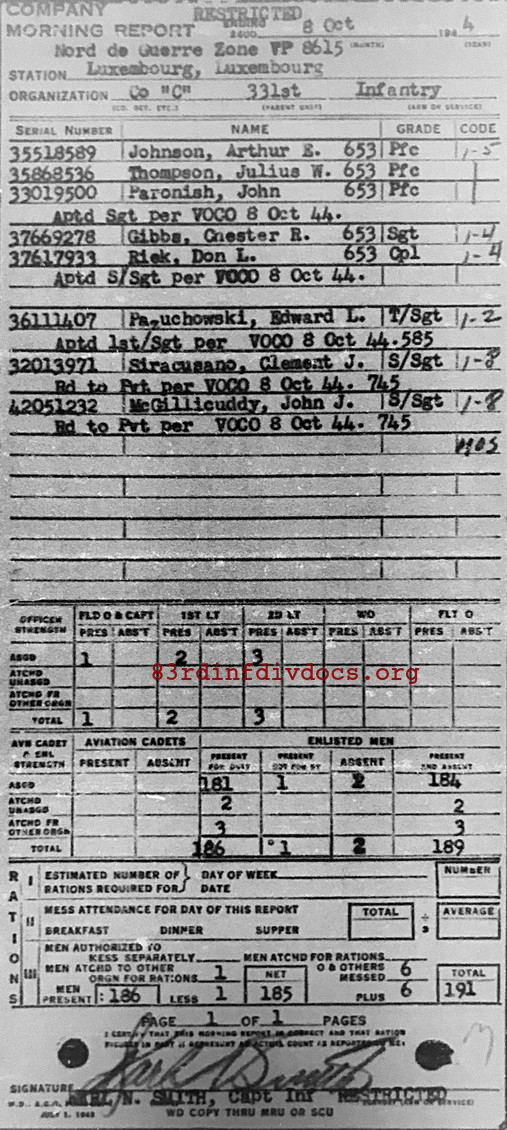 COMPANY RESTRICTED
MORNING REPORT ENDING 2400 8 Oct 194 4
(MONTH) (YEAR)
Nord de Guerre Zone VP 8615
STATION Luxembourg, Luxembourg
ORGANIZATION Co "C" 331st Infantry
(CO. DET. ETC.) (PARENT UNIT) (ARM OR SERVICE)
SERIAL NUMBER NAME GRADE CODE
35518589 Johnson, Arthur E. 653 Pfc 1-5
35868536 Thompson, Julius W. 653 Pfc
33019500 Paronish, John 653 Pfc
Aptd Sgt per VOCO 8 Oct 44.
37669278 Gibbs, Chester R. 653 Sgt 1-4
37617933 Riek, Don L. 653 Cpl 1-4
Aptd S/Sgt per VOCO 8 Oct 44.
36111407 Pazuchowski, Edward L. T/Sgt 1-2
Aptd 1st/Sgt per VOCO 8 Oct 44.585
32013971 Siracusano, Clement J. S/Sgt 1-8
Rd to Pvt per VOCO 8 Oct 44. 745
42051232 McGillicuddy, John J. S/Sgt 1-8
Rd to Pvt per VOCO 8 Oct 44. 745
MOS
OFFICER STRENGTH FLD O & CAPT 1ST LT 2D LT WO FLT O
PRES ABS'T PRES ABS'T PRES ABS'T PRES ABS'T PRES ABS'T
ASGD 1 2 3
ATCHD UNASGD
83rdinfdivdocs.org
ATCHD FR OTHER ORGN
TOTAL 1 2 3
AVN CADET & ENL STRENGTH AVIATION CADETS ENLISTED MEN
PRESENT ABSENT PRESENT FOR DUTY PRESENT NOT FOR DY ABSENT PRESENT AND ABSENT
ASGD 181 1 2 184
ATCHD UNASGD 2 2
ATCHD FR OTHER ORGN 3 3
TOTAL 186 1 2 189
RATIONS
I ESTIMATED NUMBER OF RATIONS REQUIRED FOR DAY OF WEEK DATE NUMBER
II MESS ATTENDANCE FOR DAY OF THIS REPORT TOTAL ÷ 3 AVERAGE
BREAKFAST DINNER SUPPER
III MEN AUTHORIZED TO MESS SEPARATELY MEN ATCHD FOR RATIONS
MEN ATCHD TO OTHER ORGN FOR RATIONS 1 NET O & OTHERS MESSED 6 TOTAL
MEN PRESENT: 186 LESS 1 185 PLUS 6 191
PAGE 1 OF 1 PAGES
I CERTIFY THAT THIS MORNING REPORT IS CORRECT AND THAT RATION
FIGURES IN PART III REPRESENT ACTUAL COUNT AS REPORTED TO ME:
SIGNATURE
KARL N. SMITH, Capt Inf RESTRICTED
W.D., A.G.O.
JULY 1, 1943 WD COPY THRU MRU OR SCU